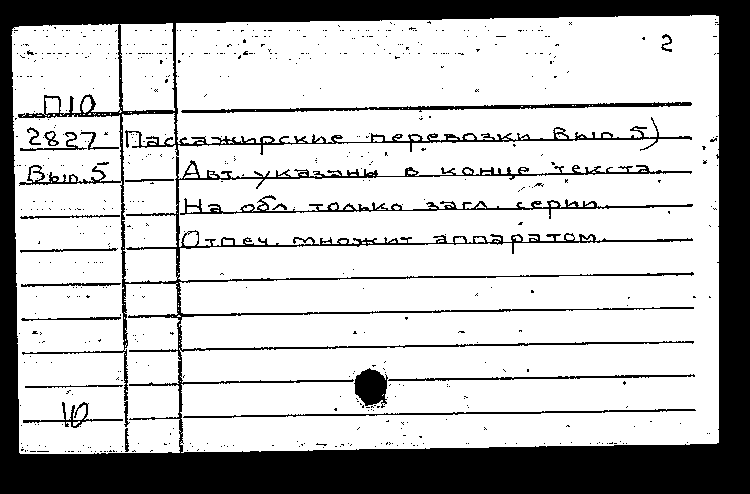 2
П10
2827 Пассажирские перевозки. Вып. 5)
Вып. 5 Авт. указаны в конце текста.
На обл. только загл. серии.
Отпеч. множит аппаратом.
10